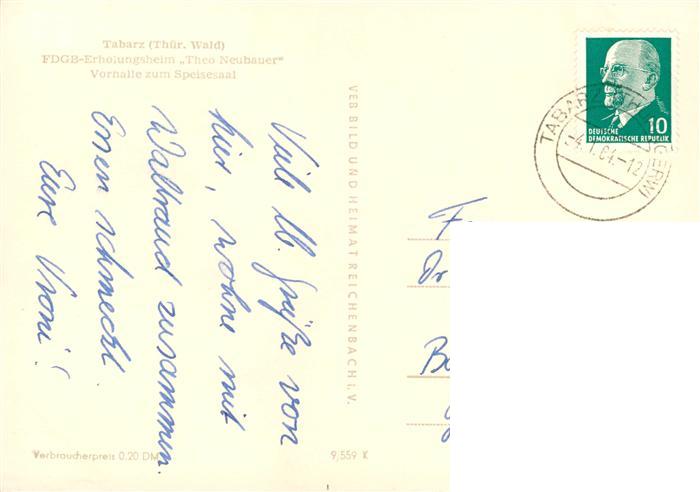 Tabarz (Thür. Wald)
FDGB-Erholungsheim „Theo Neubauer"
Vorhalle zum Speisesaal
Viele lb. Grüße von
hier, wohne mit
Waltraud zusammen.
Essen schmeckt.
Eure Vroni!
VEB BILD UND HEIMAT REICHENBACH i. V.
10
DEUTSCHE
DEMOKRATISCHE REPUBLIK
TABARZ
64.-12
F
Dr
B
Verbraucherpreis 0,20 DM
9,559 K